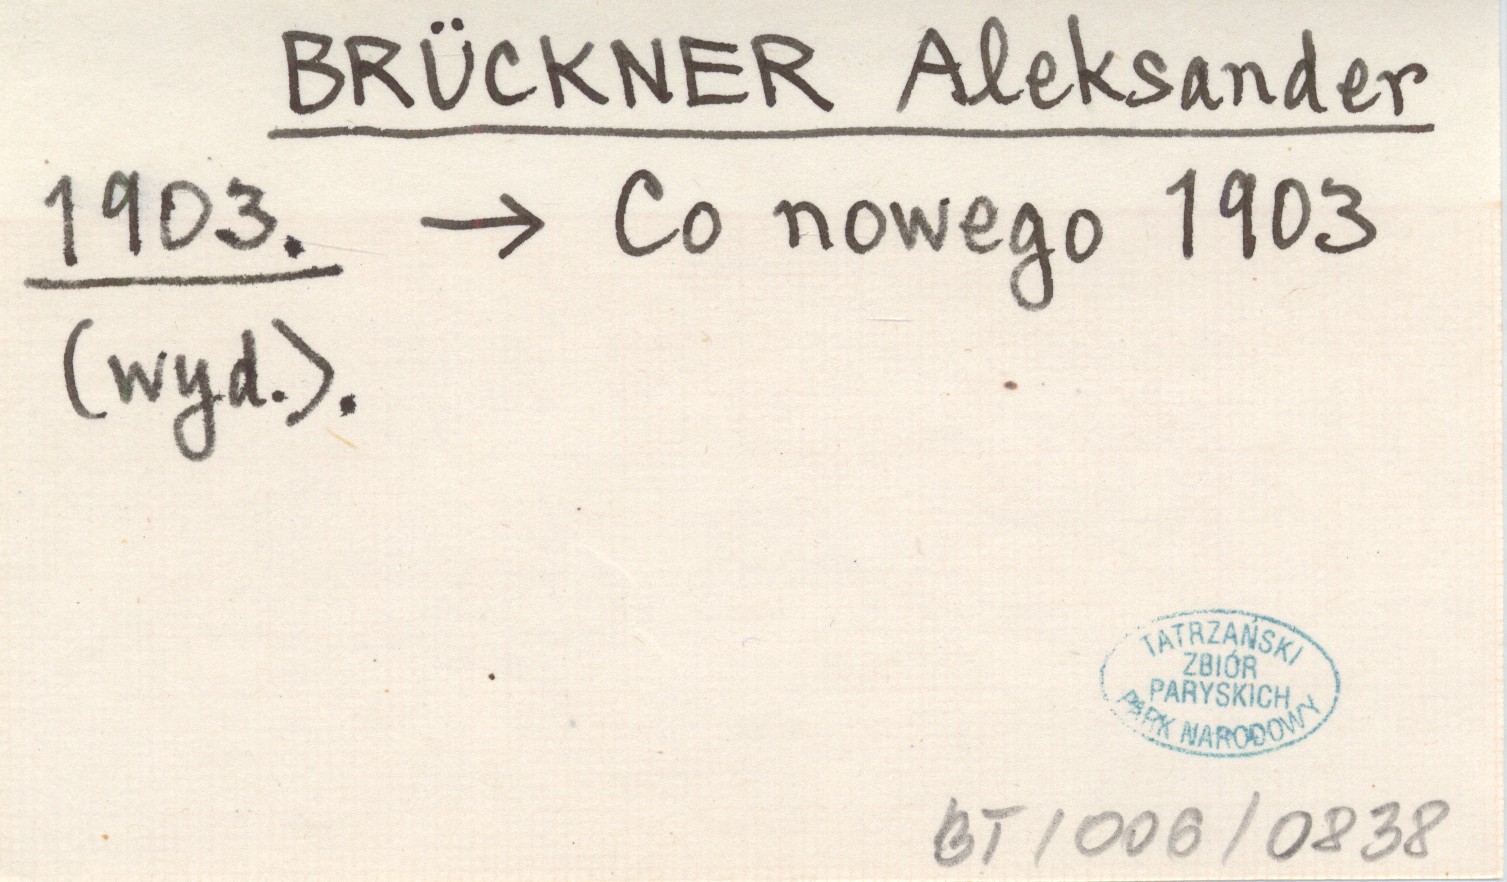 BRÜCKNER Aleksander
1903. → Co nowego 1903
(wyd.).
TATRZAŃSKI
ZBIÓR
PARYSKICH
PARK NARODOWY
BT/006/0838